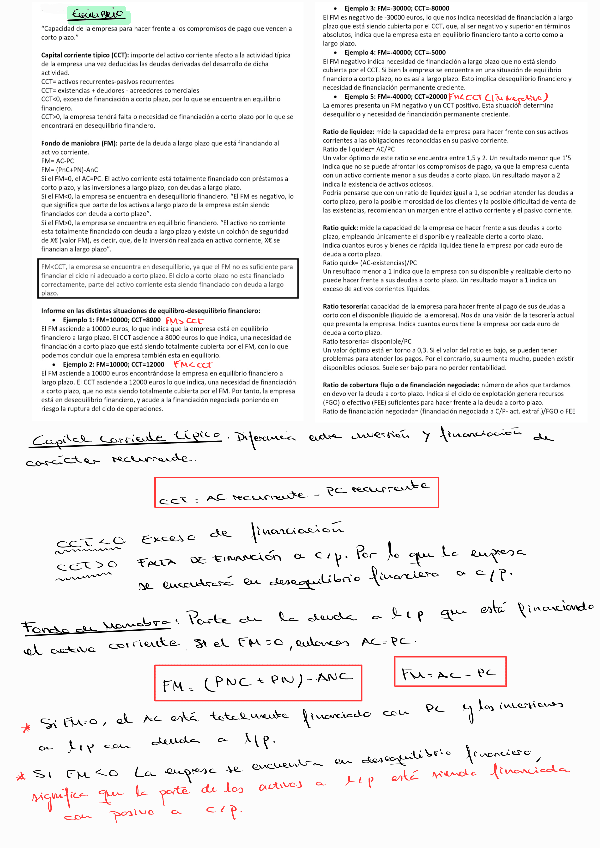 EQUILIBRIO
"Capacidad de la empresa para hacer frente a los compromisos de pago que vencen a
corto plazo."
Capital corriente típico (CCT): importe del activo corriente afecto a la actividad típica
de la empresa una vez deducidas las deudas derivadas del desarrollo de dicha
actividad.
CCT= activos recurrentes-pasivos recurrentes
CCT= existencias + deudores - acreedores comerciales
CCT<0, exceso de financiación a corto plazo, por lo que se encuentra en equilibrio
financiero.
CCT>0, la empresa tendrá falta o necesidad de financiación a corto plazo por lo que se
encontrará en desequilibrio financiero.
Fondo de maniobra (FM): parte de la deuda a largo plazo que está financiando al
activo corriente.
FM= AC-PC
FM= (PnC+PN)-AnC
Si el FM=0, el AC=PC. El activo corriente está totalmente financiado con préstamos a
corto plazo, y las inversiones a largo plazo, con deudas a largo plazo.
Si el FM<0, la empresa se encuentra en desequilibrio financiero. "El FM es negativo, lo
que significa que parte de los activos a largo plazo de la empresa están siendo
financiados con deuda a corto plazo".
Si el FM>0, la empresa se encuentra en equilibrio financiero. "El activo no corriente
esta totalmente financiado con deuda a largo plazo y existe un colchón de seguridad
de X€ (valor FM), es decir, que, de la inversión realizada en activo corriente, X€ se
financian a largo plazo".
FM<CCT, la empresa se encuentra en desequilibrio, ya que el FM no es suficiente para
financiar el ciclo ni adecuado a corto plazo. El ciclo a corto plazo no esta financiado
correctamente, parte del activo corriente esta siendo financiado con deuda a largo
plazo.
Informe en las distintas situaciones de equilibro-desequilibrio financiero:
• Ejemplo 1: FM=10000; CCT=8000 FM>CCT
El FM asciende a 10000 euros, lo que indica que la empresa está en equilibrio
financiero a largo plazo. El CCT asciende a 8000 euros lo que indica, una necesidad de
financiación a corto plazo que está siendo totalmente cubierta por el FM, con lo que
podemos concluir que la empresa también esta en equilibrio.
• Ejemplo 2: FM=10000; CCT=12000 FM<CCT
El FM asciende a 10000 euros encontrándose la empresa en equilibrio financiero a
largo plazo. El CCT asciende a 12000 euros lo que indica, una necesidad de financiación
a corto plazo, que no esta siendo totalmente cubierta por el FM. Por tanto, la empresa
está en desequilibrio financiero, y acude a la financiación negociada poniendo en
riesgo la ruptura del ciclo de operaciones.
• Ejemplo 3: FM=-30000; CCT=-80000
El FM es negativo de -30000 euros, lo que nos indica necesidad de financiación a largo
plazo que está siendo cubierta por el CCT, que, al ser negativo y superior en términos
absolutos, indica que la empresa esta en equilibrio financiero tanto a corto como a
largo plazo.
• Ejemplo 4: FM=-40000; CCT=-5000
El FM negativo indica necesidad de financiación a largo plazo que no está siendo
cubierta por el CCT. Si bien la empresa se encuentra en una situación de equilibrio
financiero a corto plazo, no es así a largo plazo. Esto implica desequilibrio financiero y
necesidad de financiación permanente creciente.
• Ejemplo 5: FM=-40000; CCT=20000 FM<CCT
La empresa presenta un FM negativo y un CCT positivo. Esta situación determina
desequilibrio y necesidad de financiación permanente creciente.
Ratio de liquidez: mide la capacidad de la empresa para hacer frente con sus activos
corrientes a las obligaciones reconocidas en su pasivo corriente.
Ratio de liquidez= AC/PC
Un valor óptimo de este ratio se encuentra entre 1,5 y 2. Un resultado menor que 1'5
indica que no se puede afrontar los compromisos de pago, ya que la empresa cuenta
con un activo corriente menor a sus deudas a corto plazo. Un resultado mayor a 2
indica la existencia de activos ociosos.
Podría pensarse que con un ratio de liquidez igual a 1, se podrían atender las deudas a
corto plazo, pero la posible morosidad de los clientes y la posible dificultad de venta de
las existencias, recomiendan un margen entre el activo corriente y el pasivo corriente.
Ratio quick: mide la capacidad de la empresa de hacer frente a sus deudas a corto
plazo, empleando únicamente el disponible y realizable cierto a corto plazo.
Indica cuantos euros y bienes de rápida liquidez tiene la empresa por cada euro de
deuda a corto plazo.
Ratio quick= (AC-existencias)/PC
Un resultado menor a 1 indica que la empresa con su disponible y realizable cierto no
puede hacer frente a sus deudas a corto plazo. Un resultado mayor a 1 indica un
exceso de activos corrientes líquidos.
Ratio tesorería: capacidad de la empresa para hacer frente al pago de sus deudas a
corto con el disponible (líquido de la empresa). Nos da una visión de la tesorería actual
que presenta la empresa. Indica cuantos euros tiene la empresa por cada euro de
deuda a corto plazo.
Ratio tesorería= disponible/PC
Un valor óptimo está en torno a 0,3. Si el valor del ratio es bajo, se pueden tener
problemas para atender los pagos. Por el contrario, si aumenta mucho, pueden existir
disponibles ociosos. Suele ser bajo para no perder rentabilidad.
Ratio de cobertura flujo o de financiación negociada: número de años que tardamos
en devolver la deuda a corto plazo. Indica si el ciclo de explotación genera recursos
(FGO) o efectivo (FEE) suficientes para hacer frente a la deuda a corto plazo.
Ratio de financiación negociada= (financiación negociada a C/P- act. extraf.)/FGO o FEE
Capital Corriente típico. Diferencia entre inversión y financiación de
carácter recurrente.
CCT = AC recurrente - PC recurrente
CCT < 0 Exceso de financiación
CCT > 0 FALTA DE FINANCIÓN a c/p. Por lo que la empresa
se encontrará en desequilibrio financiero a c/p.
Fondo de Maniobra: Parte de la deuda a l/p que está financiando
el activo corriente. Si el FM=0, entonces AC=PC.
FM = (PNC + PN) - ANC
FM = AC - PC
* Si FM=0, el AC está totalmente financiado con PC y las inversiones
a l/p con deuda a l/p.
* Si FM<0 La empresa se encuentra en desequilibrio financiero,
significa que la parte de los activos a l/p está siendo financiada
con pasivo a c/p.